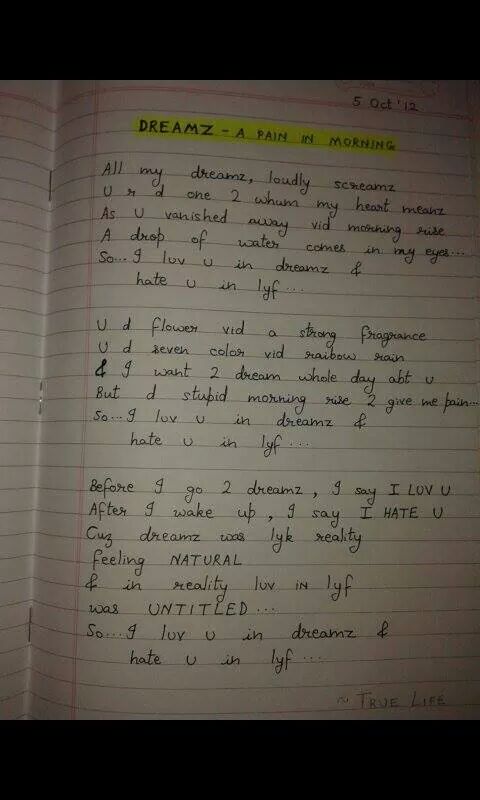 5 Oct '12
DREAMZ - A PAIN IN MORNING
All my dreamz, loudly screamz
U r d one 2 whum my heart meanz
As U vanished away vid morning rise
A drop of water comes in my eyes...
So...I luv u in dreamz &
hate u in lyf...
U d flower vid a strong fragrance
U d seven color vid raibow rain
& I want 2 dream whole day abt u
But d stupid morning rise 2 give me pain...
So...I luv u in dreamz &
hate u in lyf...
Before I go 2 dreamz, I say I LUV U
After I wake up, I say I HATE U
Cuz dreamz was lyk reality
feeling NATURAL
& in reality luv IN lyf
was UNTITLED...
So...I luv u in dreamz &
hate u in lyf...
~ TRUE LIFE